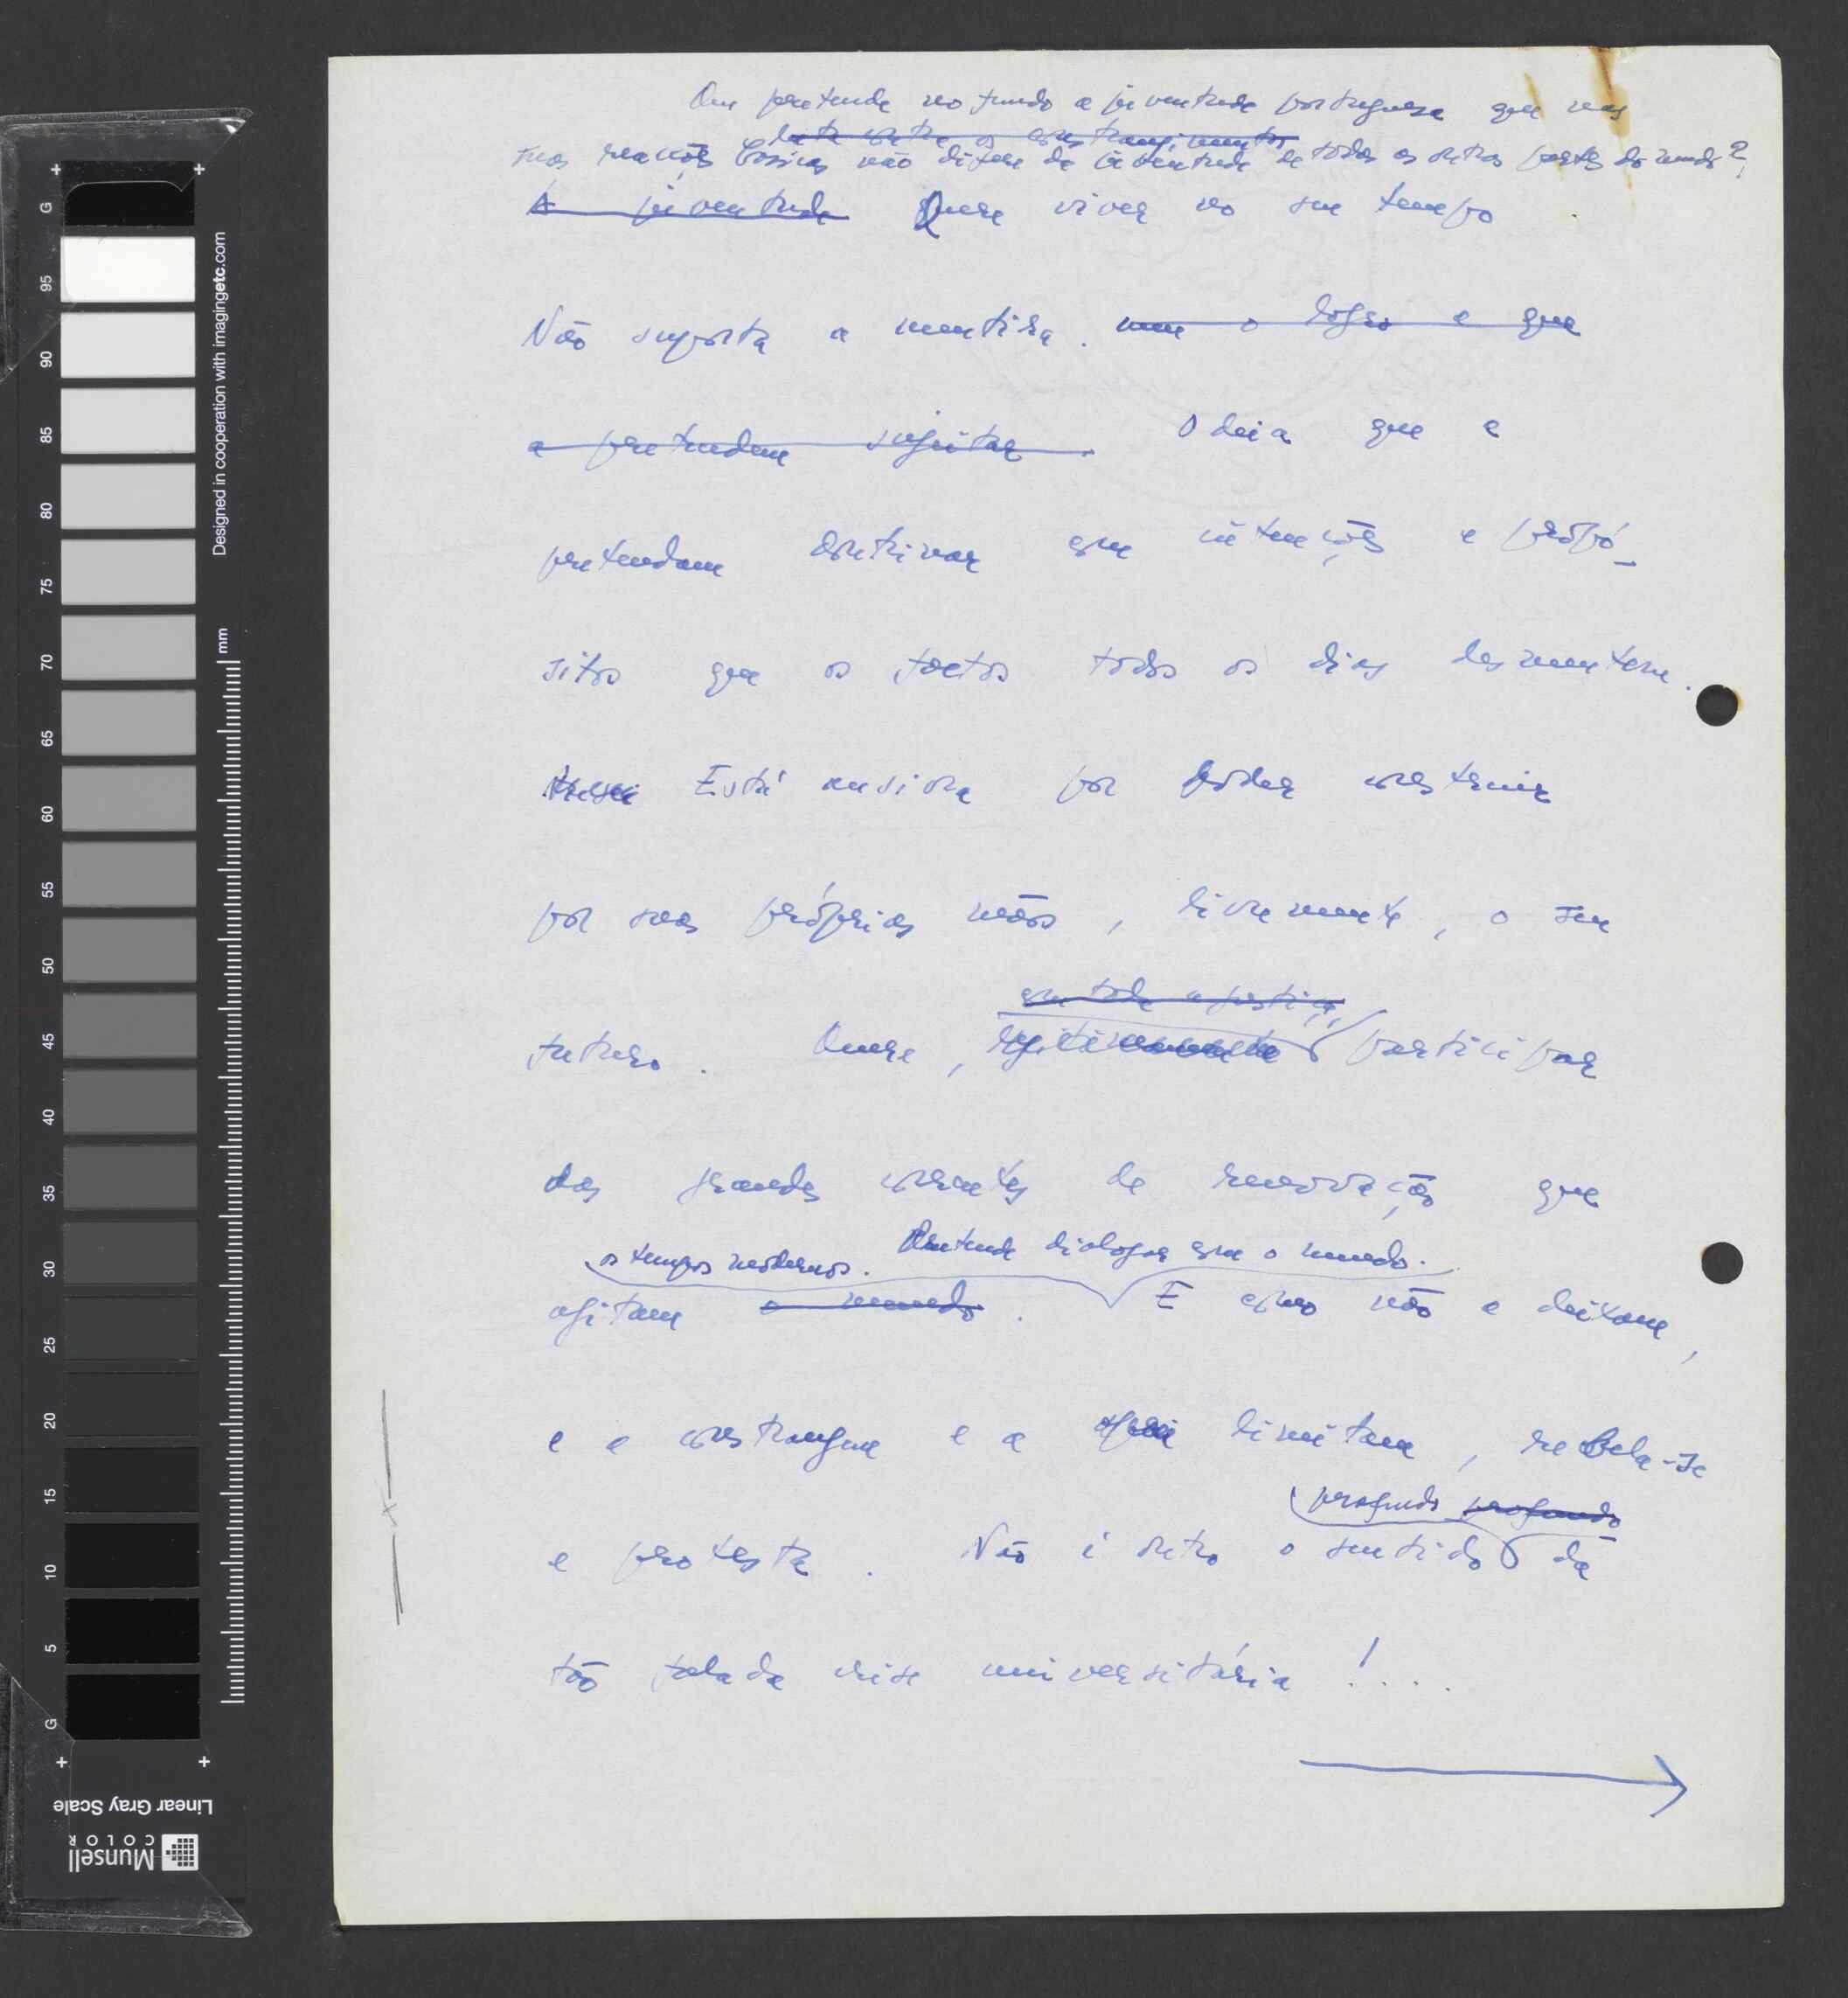 Que pretende no fundo a juventude portuguesa que nas
luta contra os constrangimentos
suas reacções básicas não difere da juventude de todas as outras partes do mundo?
A juventude Quere viver no seu tempo.
Não suporta a mentira. nem o logro a que
a pretendem sujeitar. Odeia que a
pretendam doutrinar com intenções e propó-
sitos que os factos todos os dias desmentem.
Está ansiosa por poder construir
por suas próprias mãos, livremente, o seu
com toda a justiça,
futuro. Quere, legitimamente participar
das grandes correntes de renovação que
os tempos modernos. Pretende dialogar com o mundo.
agitam o mundo. E como não a deixam,
e a constrangem e a limitam, rebela-se
profundo profundo
e protesta. Não é outro o sentido da
tão falada crise universitária!....
G
95
90
85
80
75
70
65
60
55
50
45
40
35
30
25
20
15
10
5
G
Designed in cooperation with imagingetc.com
mm
Linear Gray Scale
Munsell
COLOR